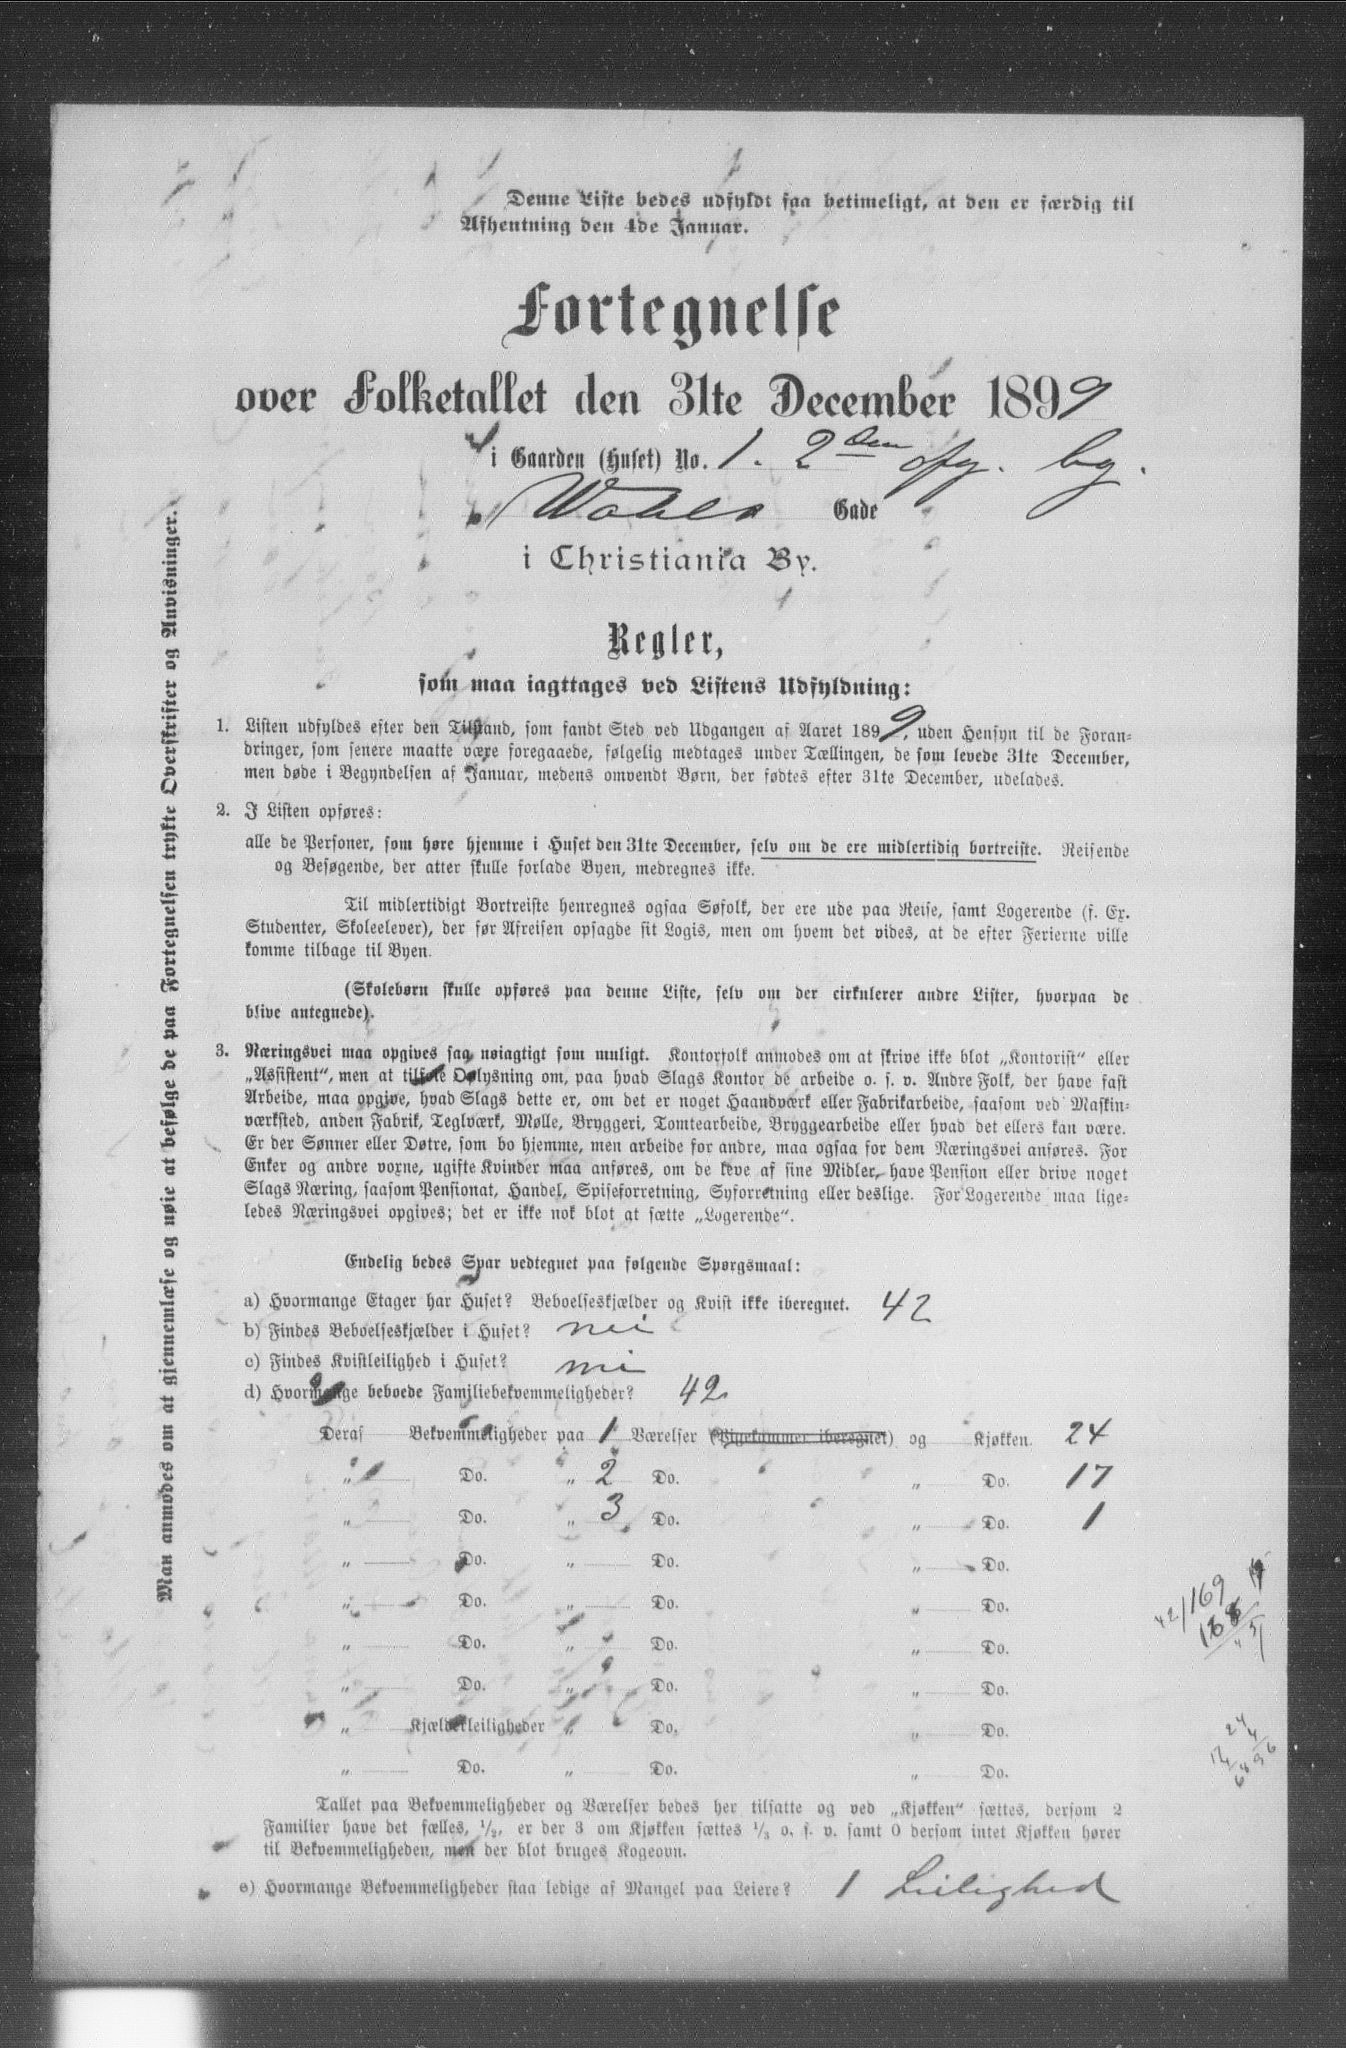 Denne Liste bedes udfyldt saa betimeligt, at den er færdig til
Afhentning den 4de Januar.
Fortegnelse
over Folketallet den 31te December 1899
i Gaarden (Huset) No. 1. 2den opg. bg.
Wahls Gade
i Christiania By.
Regler,
som maa iagttages ved Listens Udfyldning:
1. Listen udfyldes efter den Tilstand, som fandt Sted ved Udgangen af Aaret 1899, uden Hensyn til de Foran-
dringer, som senere maatte være foregaaede, følgelig medtages under Tællingen, de som levede 31te December,
men døde i Begyndelsen af Januar, medens omvendt Børn, der fødtes efter 31te December, udelades.
2. I Listen opføres:
alle de Personer, som høre hjemme i Huset den 31te December, selv om de ere midlertidig bortreiste. Reisende
og Besøgende, der atter skulle forlade Byen, medregnes ikke.
Til midlertidigt Bortreiste henregnes ogsaa Søfolk, der ere ude paa Reise, samt Logerende (f. Ex.
Studenter, Skoleelever), der før Afreisen opsagde sit Logis, men om hvem det vides, at de efter Ferierne ville
komme tilbage til Byen.
(Skolebørn skulle opføres paa denne Liste, selv om der cirkulerer andre Lister, hvorpaa de
blive antegnede).
3. Næringsvei maa opgives saa nøiagtigt som muligt. Kontorfolk anmodes om at skrive ikke blot „Kontorist“ eller
„Assistent“, men at tilføie Oplysning om, paa hvad Slags Kontor de arbeide o. s. v. Andre Folk, der have fast
Arbeide, maa opgive, hvad Slags dette er, om det er noget Haandværk eller Fabrikarbeide, saasom ved Maskin-
værksted, anden Fabrik, Teglværk, Mølle, Bryggeri, Tomtearbeide, Bryggearbeide eller hvad det ellers kan være.
Er der Sønner eller Døtre, som bo hjemme, men arbeide for andre, maa ogsaa for dem Næringsvei anføres. For
Enker og andre voxne, ugifte Kvinder maa anføres, om de leve af sine Midler, have Pension eller drive noget
Slags Næring, saasom Pensionat, Handel, Spiseforretning, Syforretning eller deslige. For Logerende maa lige-
ledes Næringsvei opgives; det er ikke nok blot at sætte „Logerende“.
Endelig bedes Svar vedtegnet paa følgende Spørgsmaal:
a) Hvormange Etager har Huset? Beboelseskjælder og Kvist ikke iberegnet. 42
b) Findes Beboelseskjælder i Huset? nei
c) Findes Kvistleilighed i Huset? nei
d) Hvormange beboede Familiebekvemmeligheder? 42
Deraf Bekvemmeligheder paa 1 Værelser (Pigekammer iberegnet) og Kjøkken. 24
„ Do. „ 2 Do. „ Do. 17
„ Do. „ 3 Do. „ Do. 1
„ Do. „ Do. „ Do.
„ Do. „ Do. „ Do.
„ Do. „ Do. „ Do.
„ Do. „ Do. „ Do.
„ Kjælderleiligheder „ Do. „ Do.
„ Do. „ Do. „ Do.
Tallet paa Bekvemmeligheder og Værelser bedes her tilsatte og ved „Kjøkken“ sættes, dersom 2
Familier have det fælles, 1/2, er der 3 om Kjøkken sættes 1/3 o. s. v. samt 0 dersom intet Kjøkken hører
til Bekvemmeligheden, men der blot bruges Kogeovn.
e) Hvormange Bekvemmeligheder staa ledige af Mangel paa Leiere? 1 Leilighed
Man anmodes om at gjennemlæse og nøie at befølge de paa Fortegnelsen trykte Overskrifter og Anvisninger.
42/169